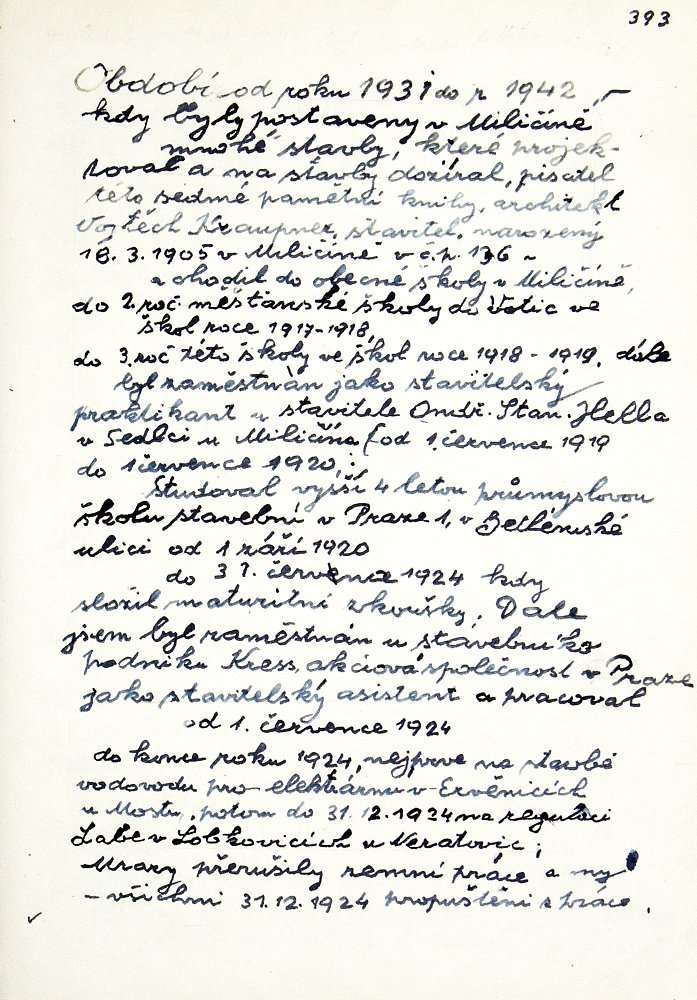 393
Období od roku 1931 do r 1942, –
kdy byly postaveny v Miličíně
mnohé stavby, které projek-
toval a na stavby dozíral, pisatel
této sedmé pamětní knihy, architekt
Vojtěch Kraupner, stavitel, narozený
18. 3. 1905 v Miličíně v č.p. 136 –
a chodil do obecné školy v Miličíně,
do 2. roč. měšťanské školy do Votic ve
škol roce 1917-1918,
do 3. roč této školy ve škol roce 1918 - 1919, dále
byl zaměstnán jako stavitelský
praktikant u stavitele Ondř. Stan. Hella
v Sedlci u Miličína (od 1. července 1919
do 1 července 1920,:
Studoval vyšší 4 letou průmyslovou
školu stavební v Praze 1, v Betlémské
ulici od 1 září 1920
do 31. července 1924 kdy
složil maturitní zkoušky. Dále
jsem byl zaměstnán u stavebního
podniku Kress, akciová společnost v Praze
jako stavitelský asistent a pracoval
od 1. července 1924
do konce roku 1924, nejprve na stavbě
vodovodu pro elektrárnu v Ervěnicích
u Mostu, potom do 31. 12. 1924 na regulaci
Labe v Lobkovicích u Neratovic;
Mrazy přerušily zemní práce a my
– všichni 31. 12. 1924 propuštěni z práce.